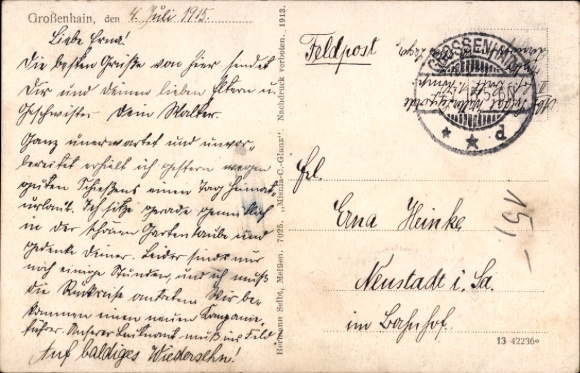 Großenhain, den 4. Juli 1915.
Liebe Erna!
Die besten Grüße von hier sendet
Dir und deinen lieben Eltern u.
Geschwister Dein Walter.
Ganz unerwartet und unvor-
bereitet erhielt ich gestern wegen
guten Schießens einen Tag Heimat-
urlaub. Ich sitze gerade gemütlich
in der schönen Gartenlaube und
gedenke deiner. Leider sind's nur
noch einige Stunden, und ich muß
die Rückreise antreten. Wir be-
kommen einen neuen Kompanie-
führer. Unser Leutnant muß ins Feld
Auf baldiges Wiedersehn!
Hermann Seibt, Meißen. 7025. „Miema-C.-Glanz“. Nachdruck verboten. 1913.
Feldpost
GROSSENHAIN
d
Frl.
Erna Heinke
Neustadt i. Sa.
im Bahnhof.
15,-
13 42236